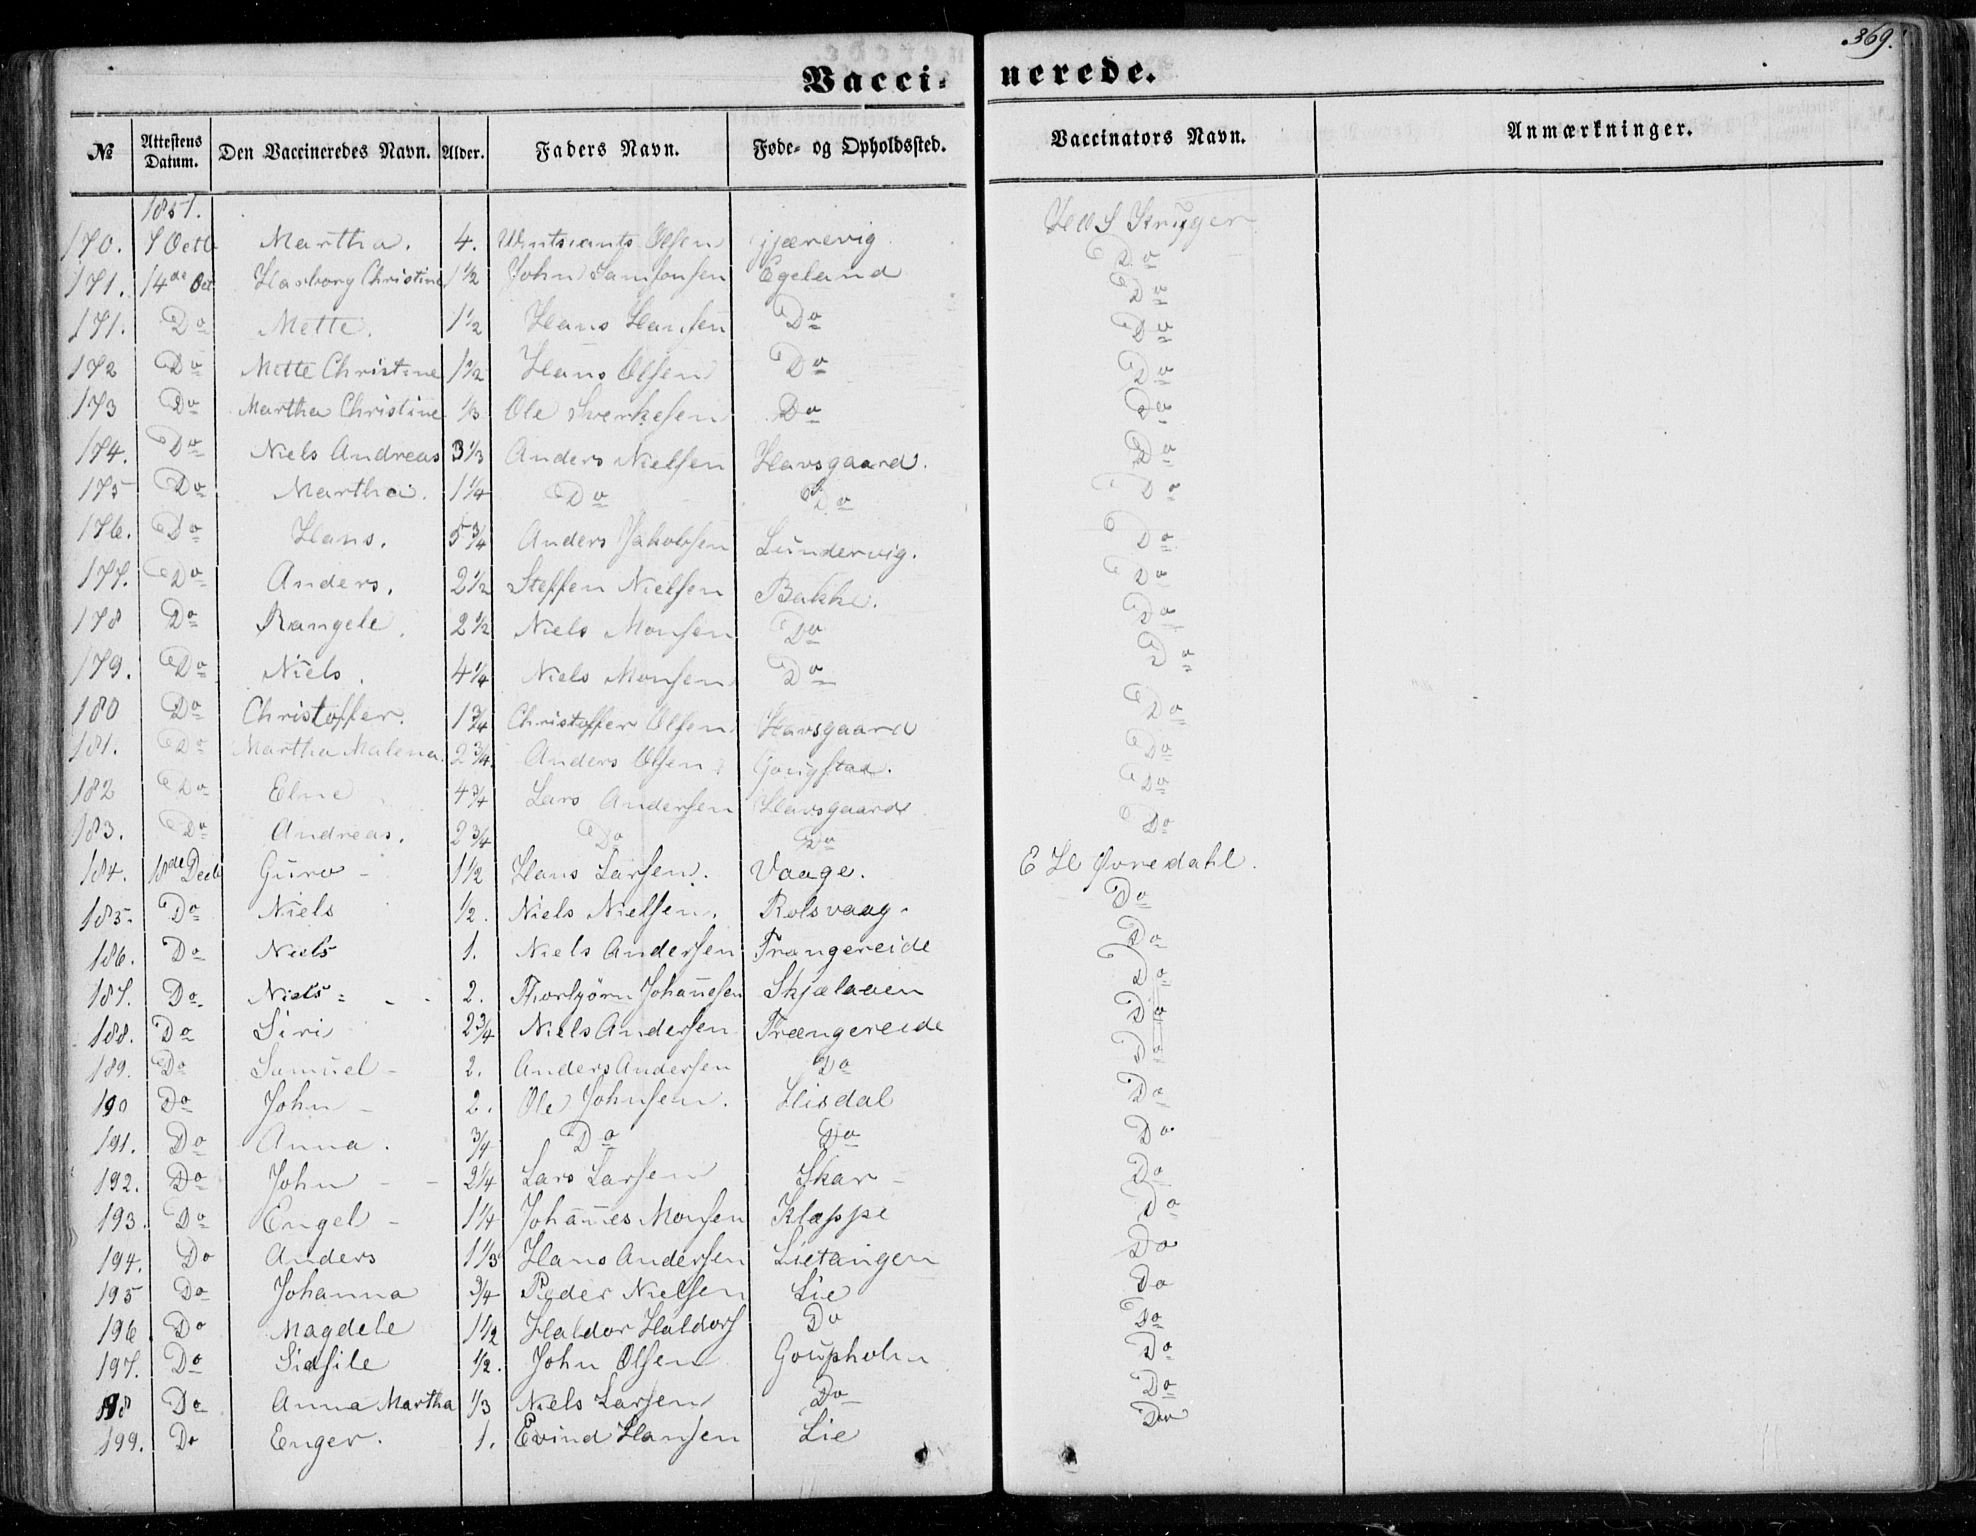 369.
Vacci- nerede.
No Attestens Datum. Den Vaccineredes Navn. Alder. Faders Navn. Føde- og Opholdssted. Vaccinators Navn. Anmærkninger.
1851.
170. 7 Octb Martha. 4. Olsen gjærevig S Krüger
171. 14de Oct Christine 1 1/2 John Samsonsen Egeland Do
171. Do Mette. 1 1/2 Hans Hansen Do Do
172 Do Mette Christine 1 1/2 Hans Olsen Do Do
173 Do Martha Christine 1/3 Ole Sverkesen Do Do
174. Do Niels Andreas 3 1/3 Anders Nielsen Havsgaard. Do
175 Do Martha. 1 1/4 Do Do Do
176. Do Hans. 5 3/4 Anders Jakobsen Lundervig. Do
177. Do Anders. 2 1/2 Steffen Nielsen Bakke. Do
178 Do Rangele. 2 1/2 Niels Monsen Do Do
179. Do Niels. 4 1/4 Niels Monsen Do Do
180 Do Christoffer. 1 3/4 Christoffer Olsen Havsgaard Do
181. Do Martha Malena. 2 3/4 Anders Olsen Gougstad. Do
182 Do Elne 4 3/4 Lars Andersen Havsgaard Do
183. Do Andreas. 2 3/4 Do Do Do
184. 18de Decb Guro - 1 1/2 Hans Larsen. Vaage. E H Øvredahl.
185. Do Niels 1/2. Niels Nielsen. Rolsvaag. Do
186. Do Niels 1. Niels Andersen Trængereide Do
187. Do Niels 2. Thorbjørn Johannesen Skjælaaen Do
188. Do Siri 2 3/4 Niels Andersen Trængereide Do
189. Do Samuel - 2. Anders Andersen Do Do
190 Do John - 2. Ole Johnsen. Hisdal Do
191. Do Anna. 3/4 Do Do Do
192. Do John - - 2 1/4 Lars Larsen Skar - Do
193. Do Engel - 1 1/4 Johannes Monsen Klæppe Do
194. Do Anders 1 1/3 Hans Andersen Lietangen Do
195 Do Johanna 3/4 Peder Nielsen Lie Do
196 Do Magdele 1 1/2 Haldor Haldors Do Do
197. Do Sidsile 1/2. John Olsen Goupholm Do
198 Do Anna Martha 1/3 Niels Larsen Do Do
199. Do Enger. 1. Evind Hansen Lie Do